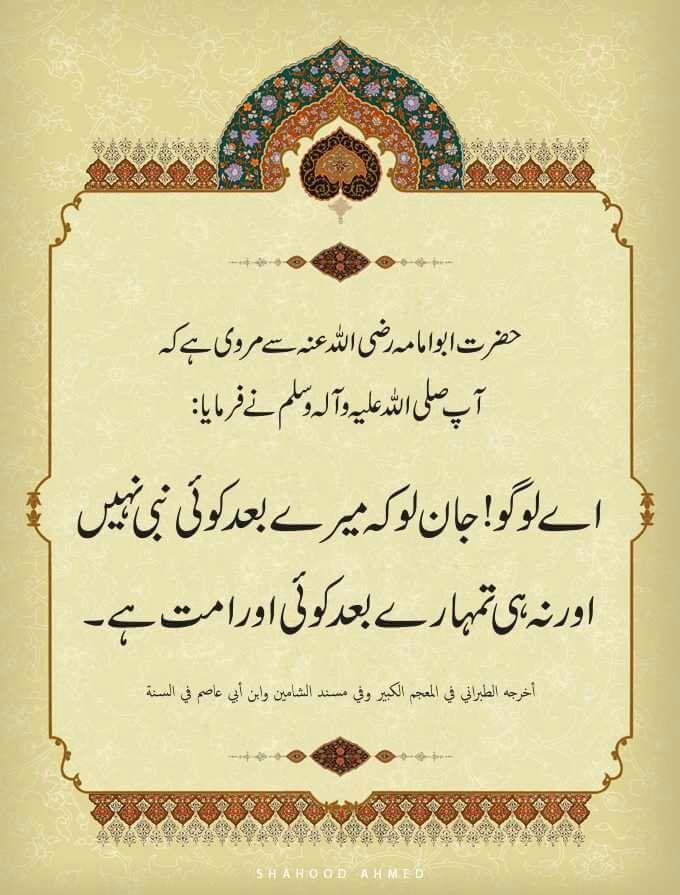 حضرت ابو امامہ رضی اللہ عنہ سے مروی ہے کہ
آپ صلی اللہ علیہ وآلہ وسلم نے فرمایا:
اے لوگو! جان لو کہ میرے بعد کوئی نبی نہیں
اور نہ ہی تمہارے بعد کوئی اور امت ہے۔
أخرجه الطبراني في المعجم الكبير وفي مسند الشامين وابن أبي عاصم في السنة
SHAHOOD AHMED